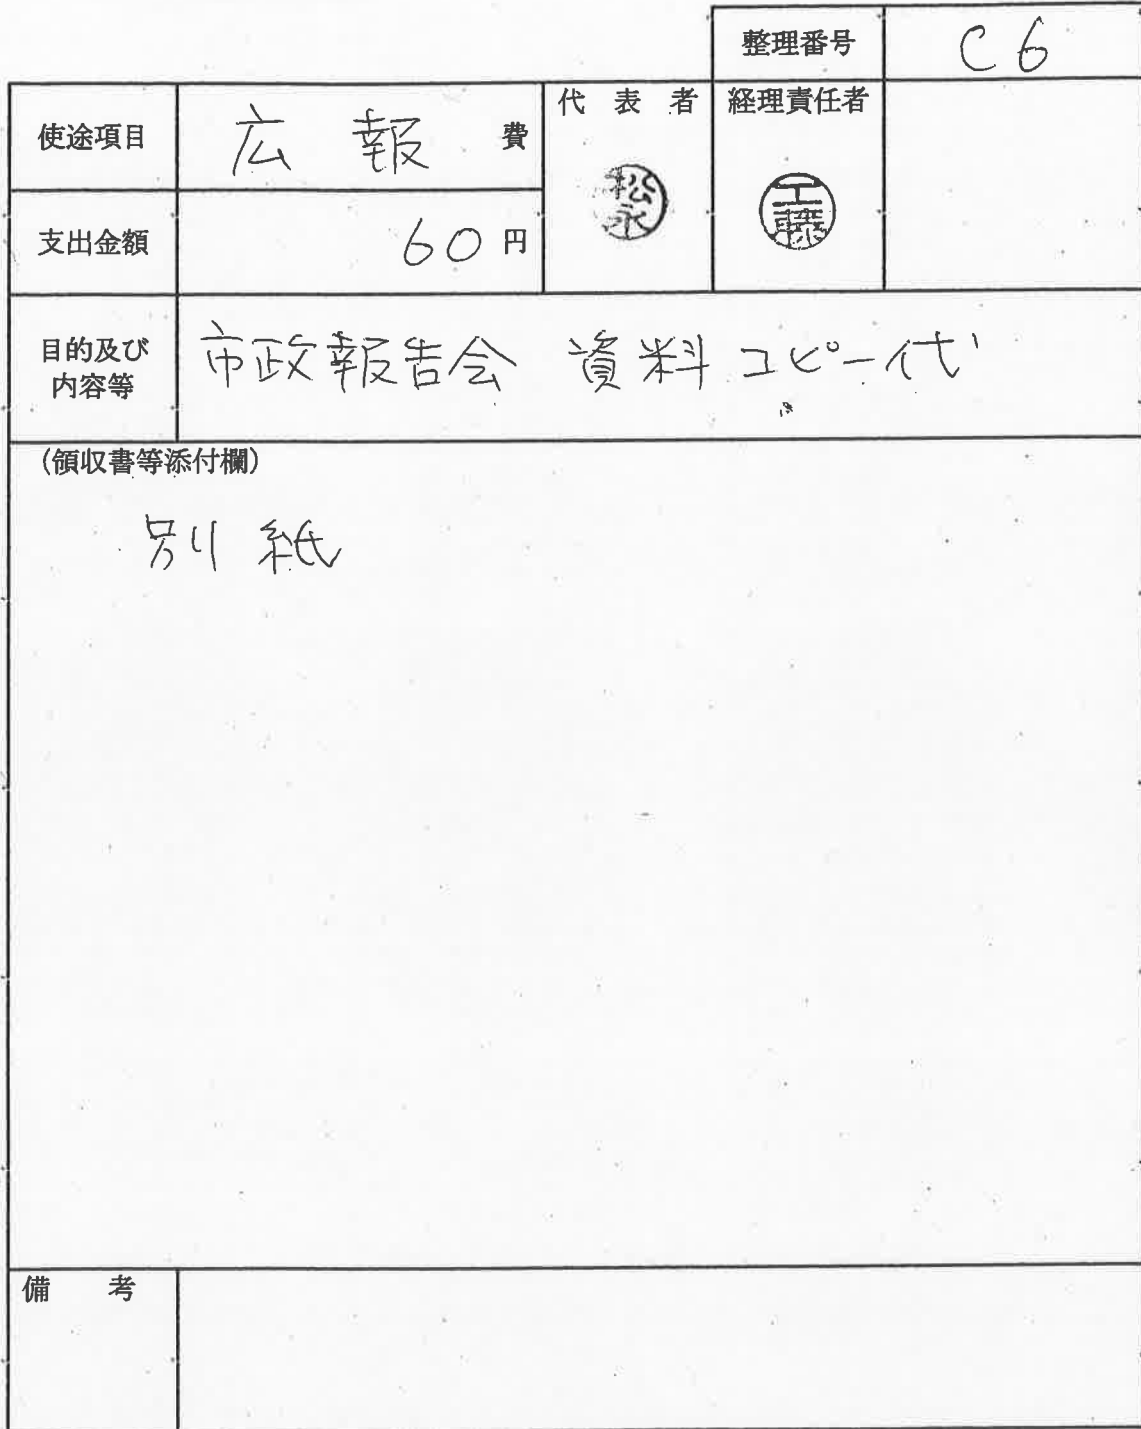 整理番号 C6
使途項目 広報 費 代表者 経理責任者
松永 工藤
支出金額 60円
目的及び内容等 市政報告会 資料コピー代
(領収書等添付欄)
別紙
備考